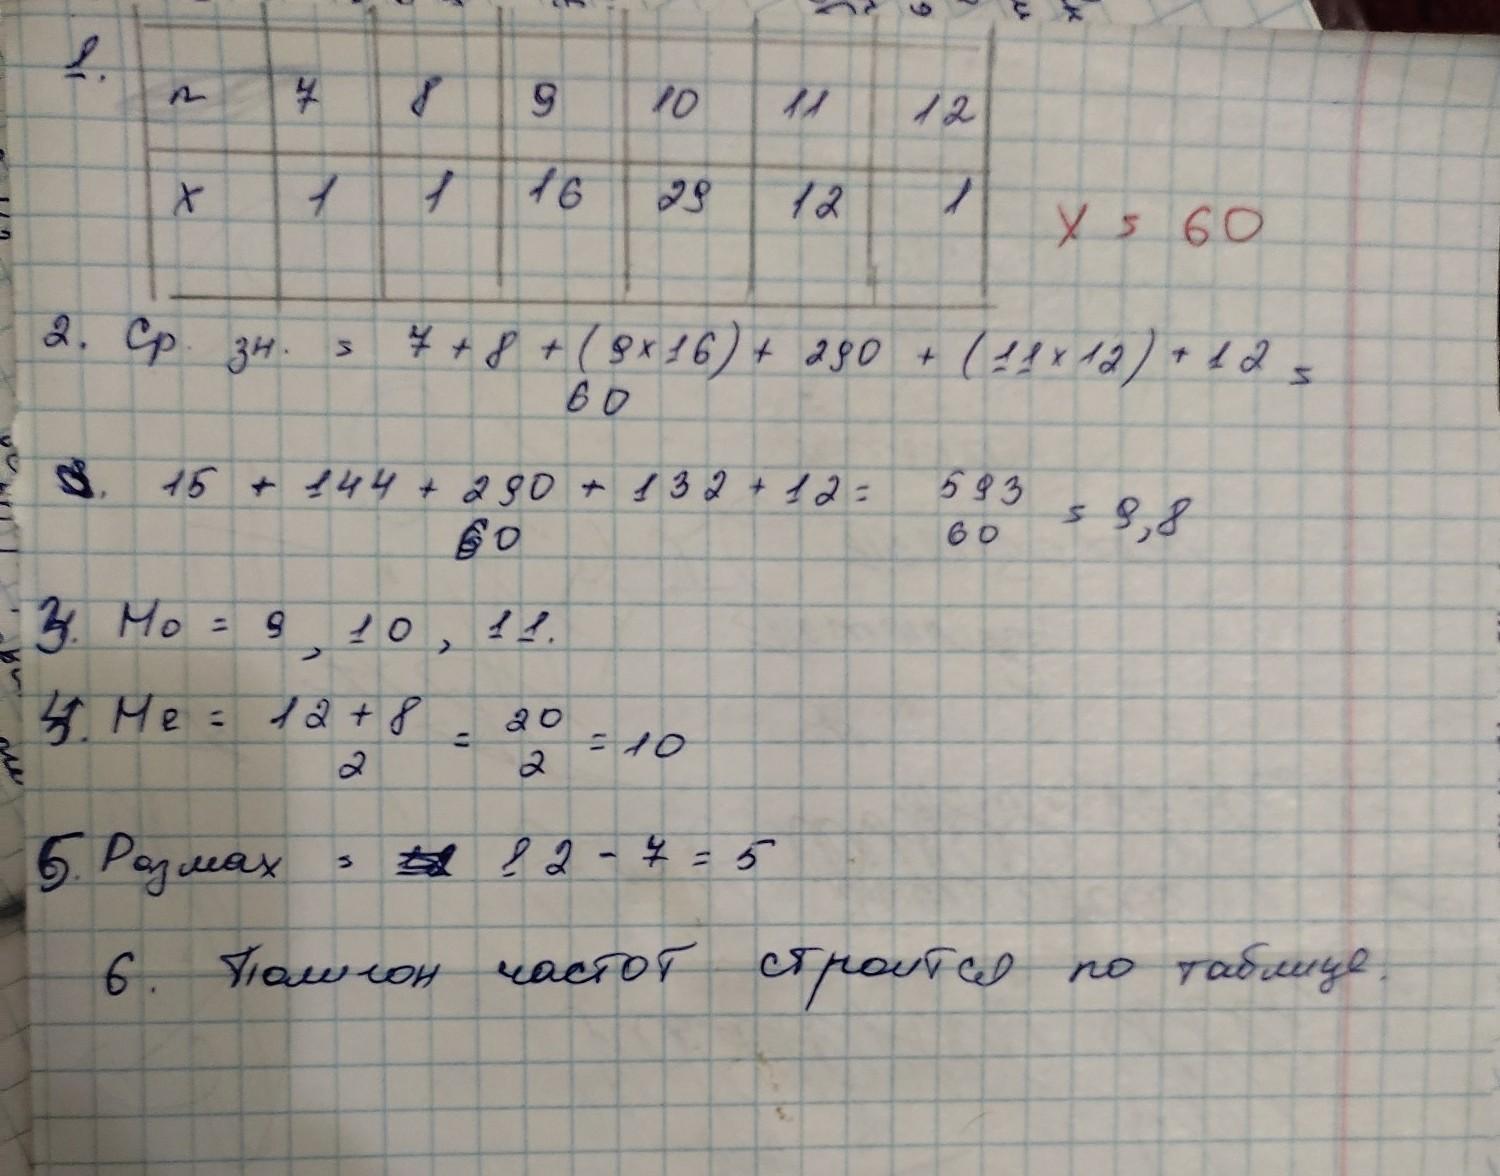 1.
n 7 8 9 10 11 12
x 1 1 16 29 12 1
x = 60
2. Ср. зн. = 7 + 8 + (9×16) + 290 + (11×12) + 12 =
60
3. 15 + 144 + 290 + 132 + 12 = 593 = 9,8
60 60
3. Мо = 9, 10, 11.
4. Ме = 12 + 8 = 20 = 10
2 2
5. Размах = 12 - 7 = 5
6. Полигон частот строится по таблице.